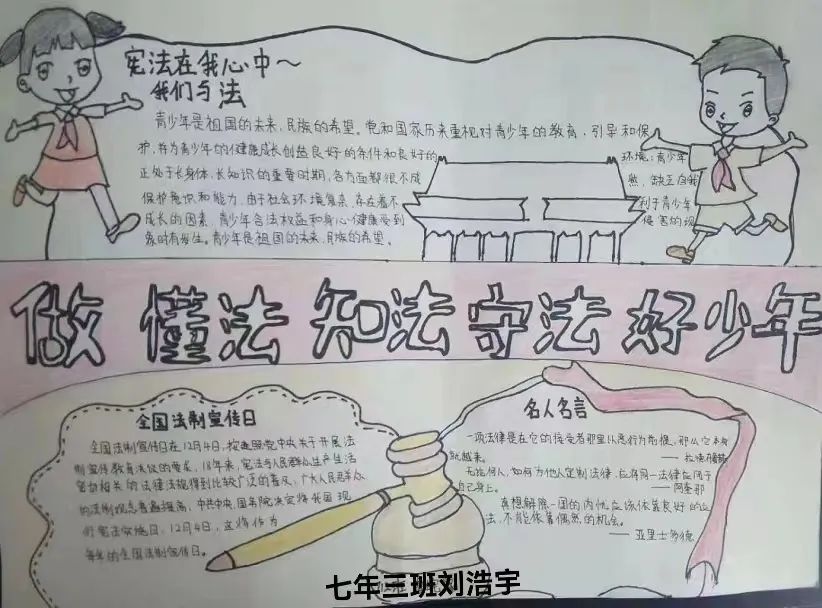 宪法在我心中～
我们与法
青少年是祖国的未来,民族的希望。党和国家历来重视对青少年的教育,引导和保
护,并为青少年的健康成长创造良好的条件和良好的环境;青少年
正处于长身体,长知识的重要时期,各方面都很不成熟,缺乏自我
保护意识和能力,由于社会环境复杂,存在着不利于青少年
成长的因素,青少年合法权益和身心健康受到侵害的现
象时有发生。青少年是祖国的未来,民族的希望。
做懂法知法守法好少年
全国法制宣传日
全国法制宣传日在12月4日,按照党中央关于开展法
制宣传教育决议的要求,18年来,宪法与人民群众生产生活
密切相关的法律法规得到比较广泛的普及,广大人民群众
的法制观念普遍提高,中共中央,国务院决定将我国现
行宪法实施日,12月4日,这将作为
每年的全国法制宣传日。
名人名言
一项法律是在它的接受者那里以意行为前提,那么它本身
就越来。
无论何人,如何为他人定制法律,应将同一法律应用于
自己身上。
——阿奎那
真想解除一国的内忧应该依靠良好的立
法,不能依靠偶然的机会。
——亚里士多德
七年三班刘浩宇